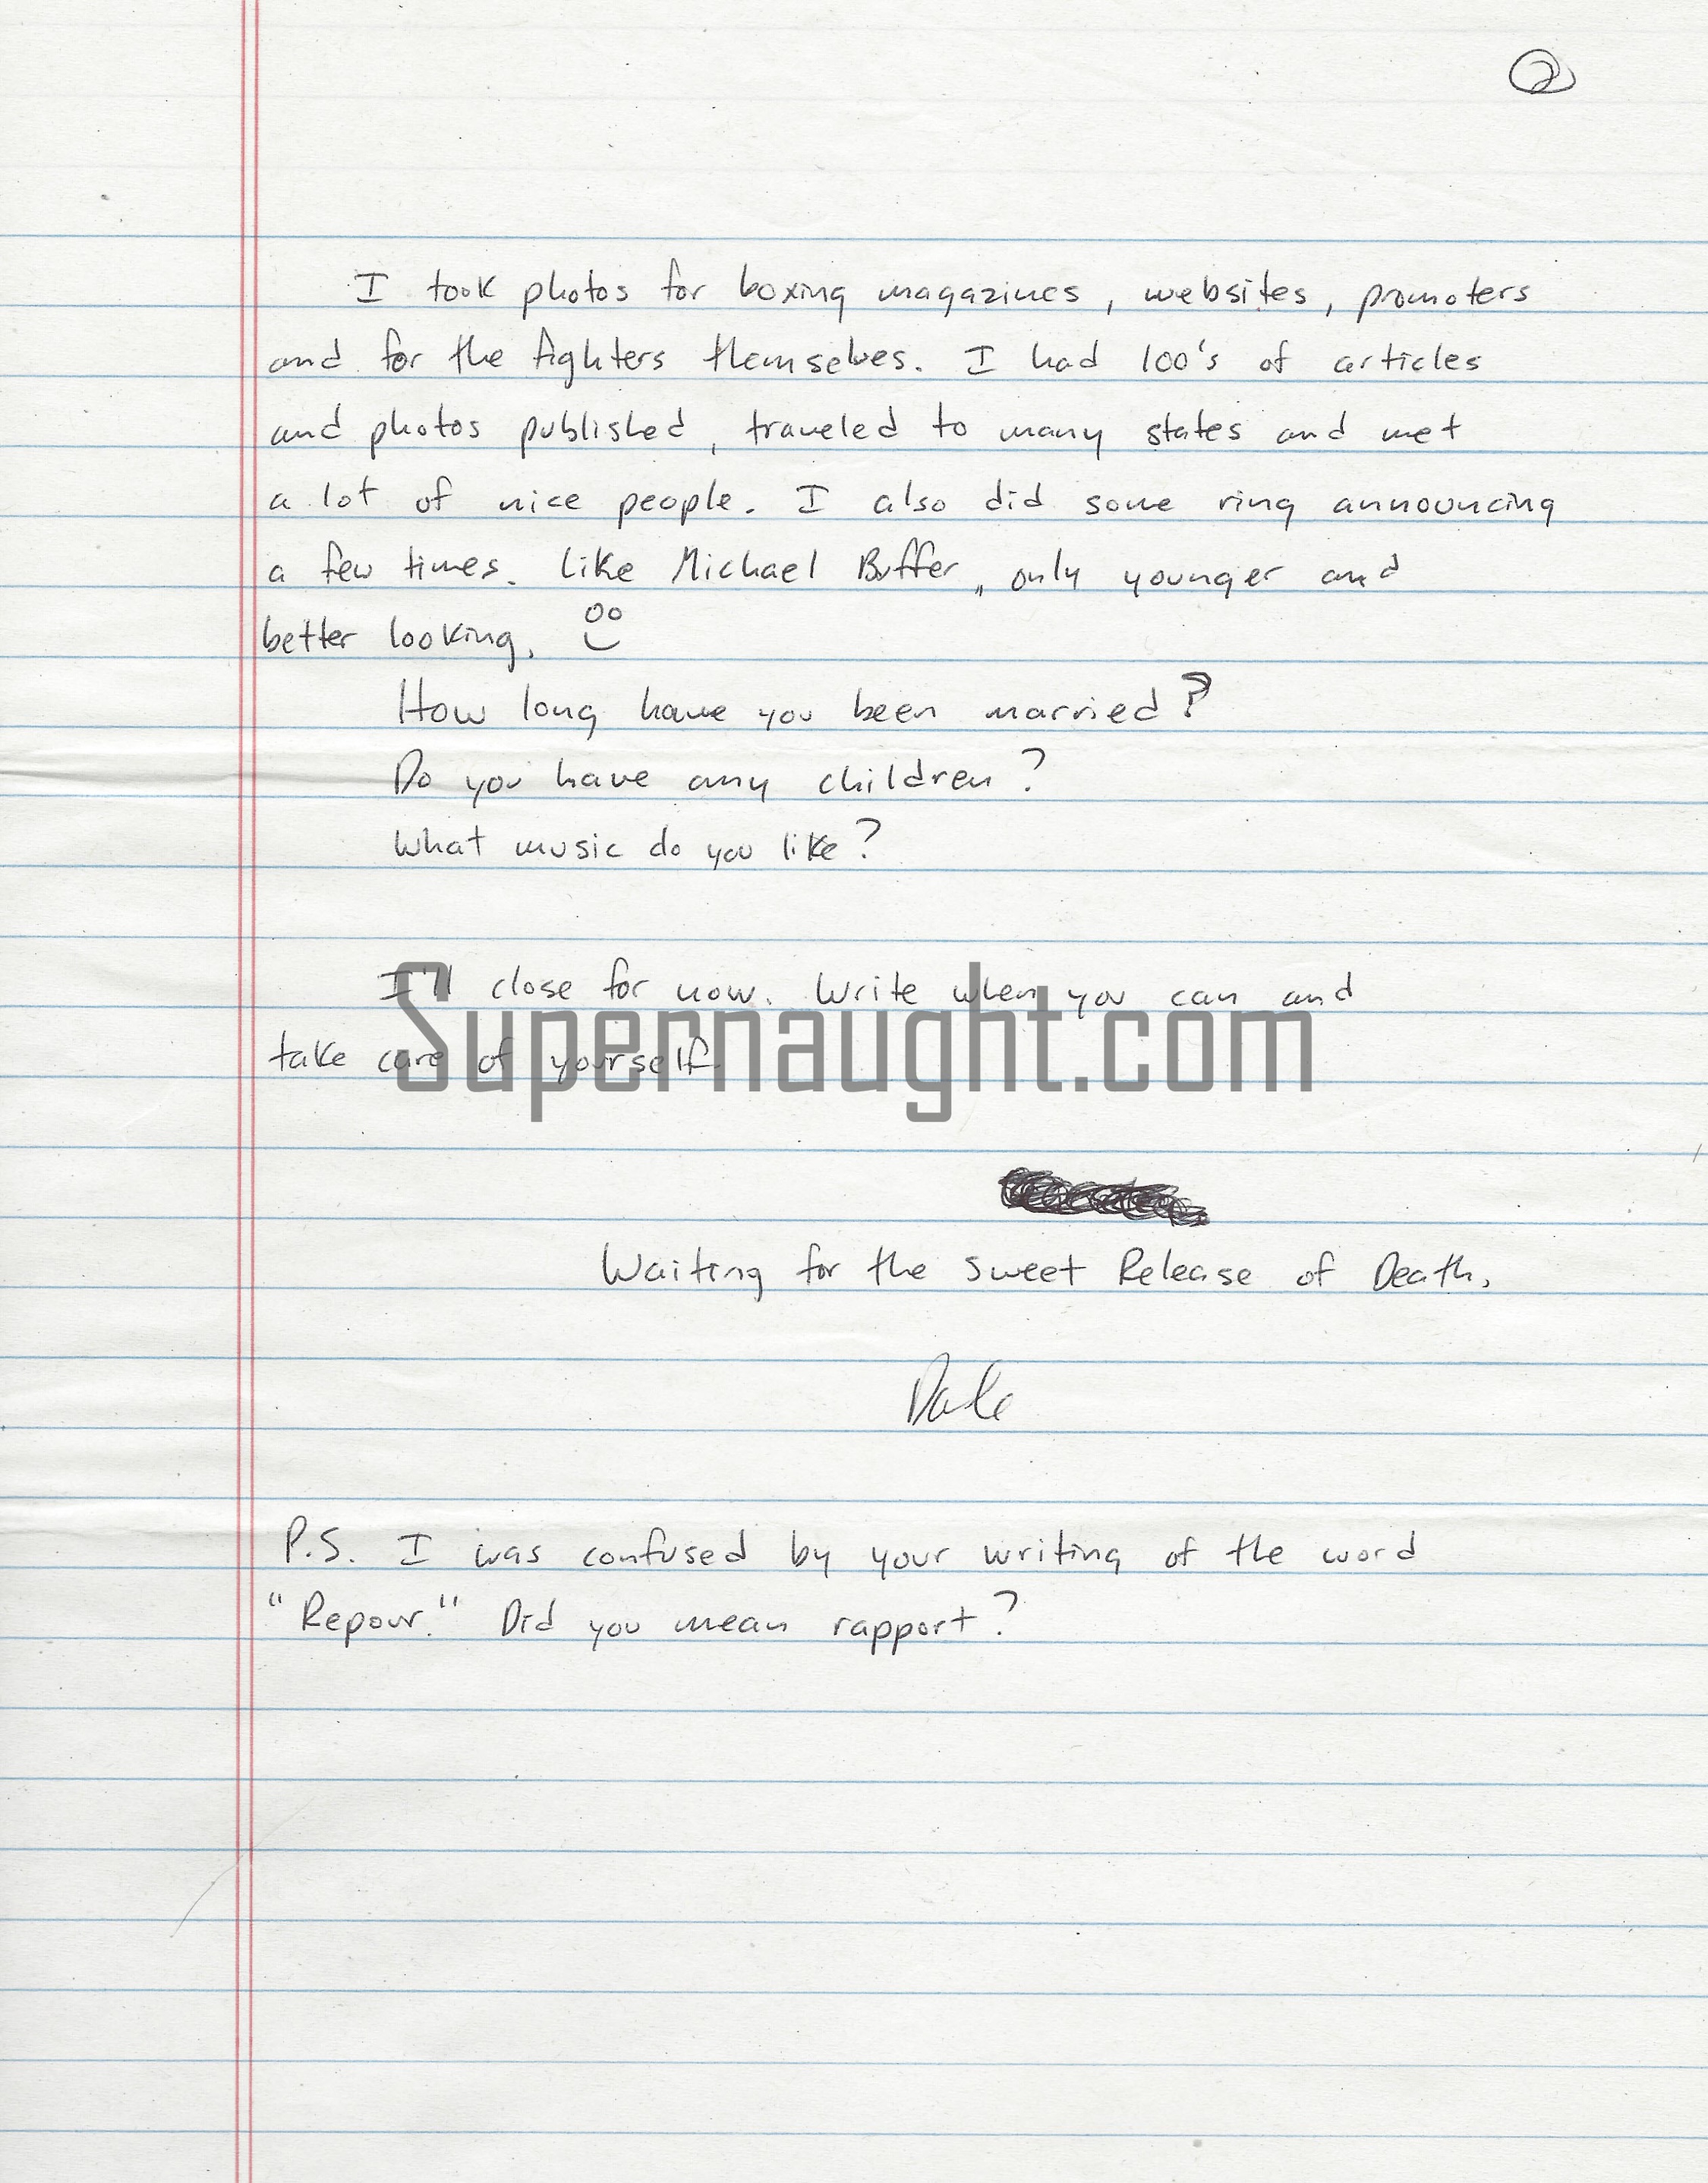 2
I took photos for boxing magazines, websites, promoters
and for the fighters themselves. I had 100's of articles
and photos published, traveled to many states and met
a lot of nice people. I also did some ring announcing
a few times. Like Michael Buffer, only younger and
better looking.
How long have you been married?
Do you have any children?
What music do you like?
I'll close for now. Write when you can and
Supernaught.com
take care of yourself.
Waiting for the Sweet Release of Death,
Dale
P.S. I was confused by your writing of the word
"Repour." Did you mean rapport?